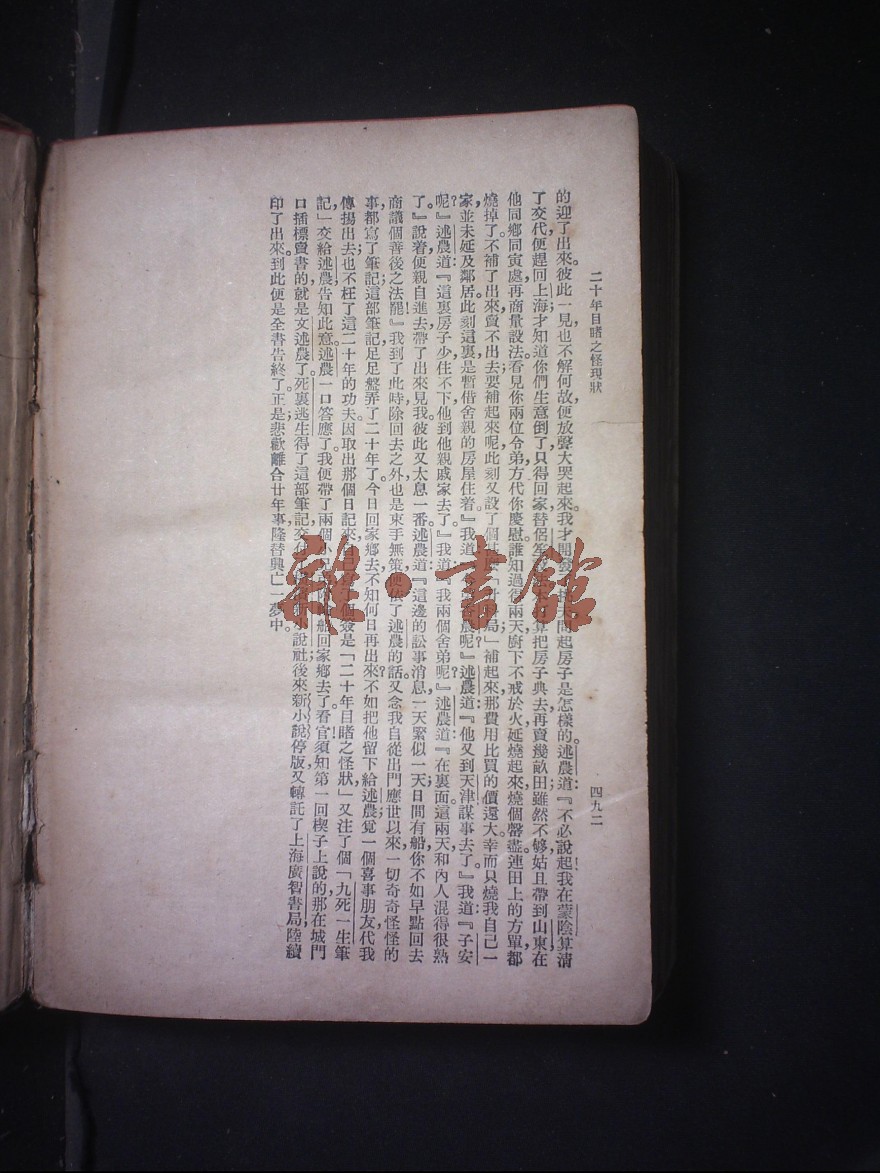 二十年目睹之怪現狀
四九二
的迎了出來。彼此一見也不解何故便放聲大哭起來。我才開發 問起房子是怎樣的。述農道:『不必說起!我在蒙陰算清
了交代便趕回上海才知道你們生意倒了只得回家替侶笙 算把房子典去再賣幾畝田雖然不够姑且帶到山東在
他同鄉同寅處再商量設法。看見你兩位令弟方代你慶慰誰知過得兩天廚下不戒於火延燒起來燒個罄盡。連田上的方單都
燒掉了。不補了出來賣不出去要補起來呢此刻又設了個 局」補起來那費用比買的價還大。幸而只燒我自己一
家並未延及鄰居此刻這裏是暫借舍親的房屋住着。』我道: 農呢?』述農道:『他又到天津謀事去了。』我道:『子安
呢?』述農道:『這裏房子少住不下他到他親戚家去了。』我道:『我兩個舍弟呢?』述農道:『在裏面這兩天和內人混得很熟
了。』說着便親自進去帶了出來見我。彼此又太息一番。述農道:『這邊的訟事消息一天緊似一天日間有船你不如早點回去
商議個善後之法罷!』我到了此時除回去之外也是束手無策便依了述農的話。又念我自從出門應世以來一切奇奇怪怪的
事都寫了筆記;這部筆記足足盤弄了二十年了。今日回家鄉去不知何日再出來?不如把他留下給述農覓一個喜事朋友代我
傳揚出去也不枉了這二十年的功夫。因取出那個日記來自己 個簽是「二十年目睹之怪狀」又注了個「九死一生筆
記」交給述農告知此意。述農一口答應了。我便帶了兩個小兄 船回家鄉去了。看官!須知第一回楔子上說的那在城門
口插標賣書的就是文述農了。死裏逃生得了這部筆記交付 小說社;後來新小說停版又轉託了上海廣智書局陸續
印了出來。到此便是全書告終了。正是:悲歡離合廿年事隆替興亡一夢中。
雜·書館